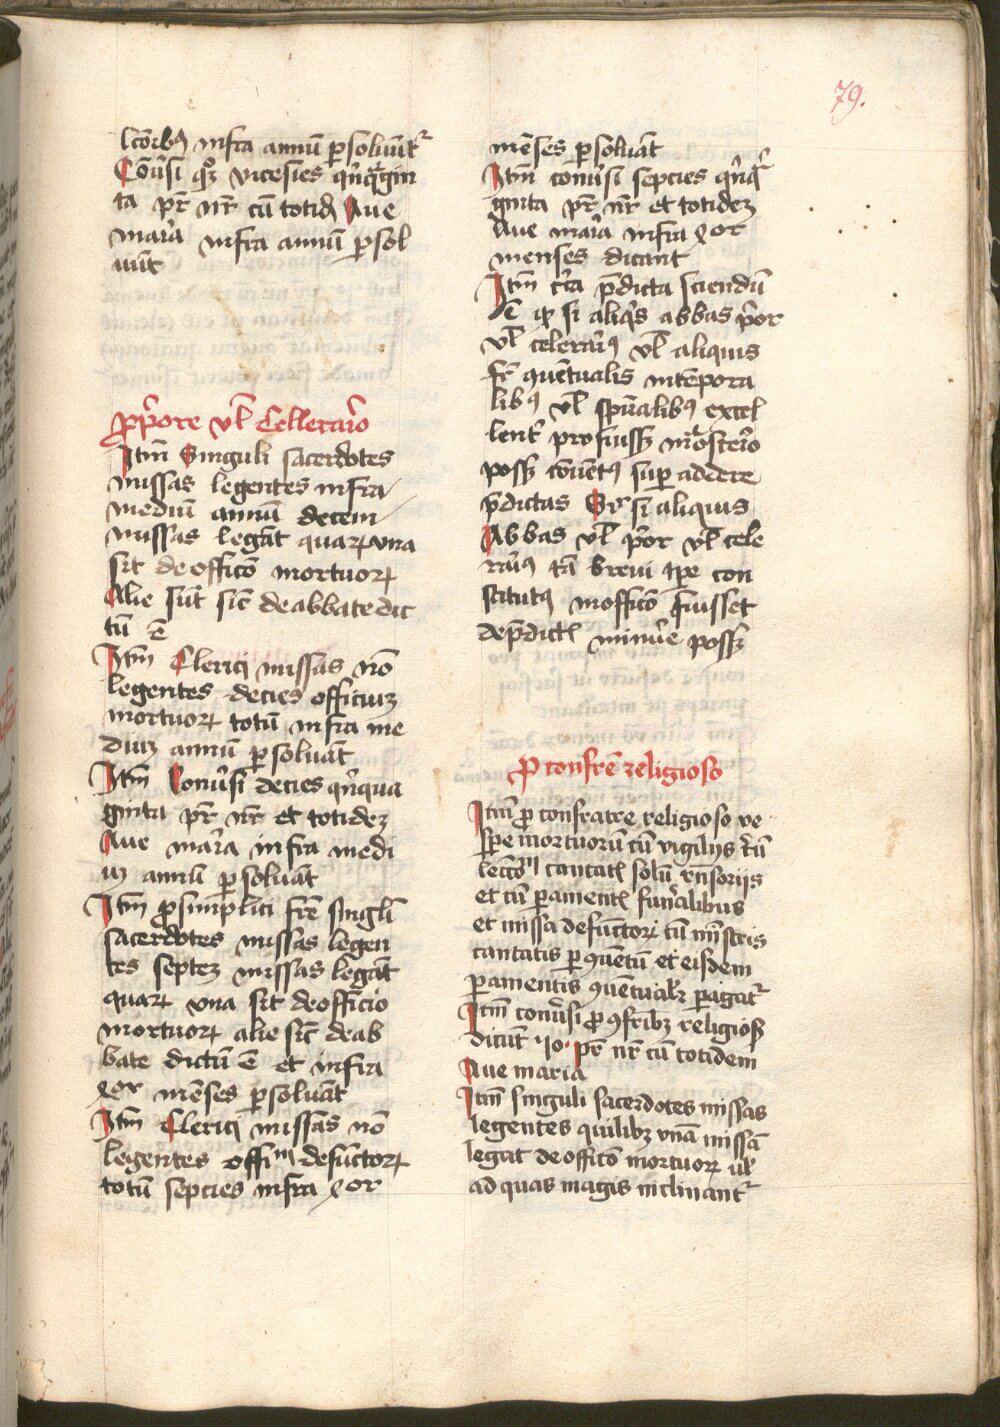 79.
lc̄orbꝰ infra annū ꝑsoluūt᷑
Cōuersi qꝫ vicesies qͥnq̄gin
ta pr̄ nr̄ cū totidē Aue
maria infra annū ꝑsol
uūt
ꝓ p̄ore vl̄ Cellerario
Itm̄ Singuli sacerdotes
missas legentes infra
mediū annū decem
missas legāt quaꝝ vna
sit de officō mortuoꝝ
Alie sūt sic̄ de abbate dic
tū ē
Itm̄ Clerici missas nō
legentes decies officiuꝫ
mortuoꝝ totū infra me
diuꝫ annū ꝑsoluāt
Itm̄ Conūsi decies qͥnqua
ginta pr̄ nr̄ et totideꝫ
Aue maria infra medi
uꝫ annū ꝑsoluāt
Itm̄ ꝓ simplici fr̄e singl̄i
sacerdotes missas legen
tes septeꝫ missas legāt
quaꝝ vna sit de officio
mortuoꝝ alie sic̄ de ab
bate dictū ē et infra
qͣor mēses ꝑsoluāt
Itm̄ Clerici missas nō
legentes offiᵐ defūctoꝝ
totū sepcies infra qͣor
mēses ꝑsoluāt
Itm̄ conūsi sepcies qͥnqͣ
ginta pr̄ nr̄ et totideꝫ
Aue maria infra qͣor
menses dicant
Itm̄ cͥca p̄dicta sciendū
ē qꝫ si aliqͥs abbas p̄or
vl̄ celerariꝰ vl̄ aliquis
fr̄ ꝯuētualis in tēpora
libꝰ vl̄ spūalibꝰ excel
lent᷑ profuissꝫ mōsterio
possꝫ cōuētꝰ suꝑ addere
p̄dictas Sꝫ si aliquis
Abbas vl̄ p̄or vl̄ cele
rariꝰ tā breui tꝑe con
stitutꝰ in officō fuisset
de p̄dictꝭ minu̾e possꝫ
ꝓ confr̄e religioso
Itm̄ ꝓ confratre religioso ve
sꝑe mortuorū cū vigilijs triū
leccōnū cantatꝭ solū rn̄soriis
et cū ꝑamentꝭ funeralibus
et missa defūctoꝝ cū mīstris
cantatis ꝑ ꝯuētū et eisdem
ꝑamentis ꝯuētualꝭr ꝑagat᷑
Itm̄ conūsi ꝓ ꝯfribꝫ religiosꝭ
dicūt ·10· pr̄ nr̄ cū totidem
Aue maria
Itm̄ singuli sacerdotes missas
legentes quilibꝫ vnā missā
legat de officō mortuoꝝ ul̄
ad quas magis inclinant᷑